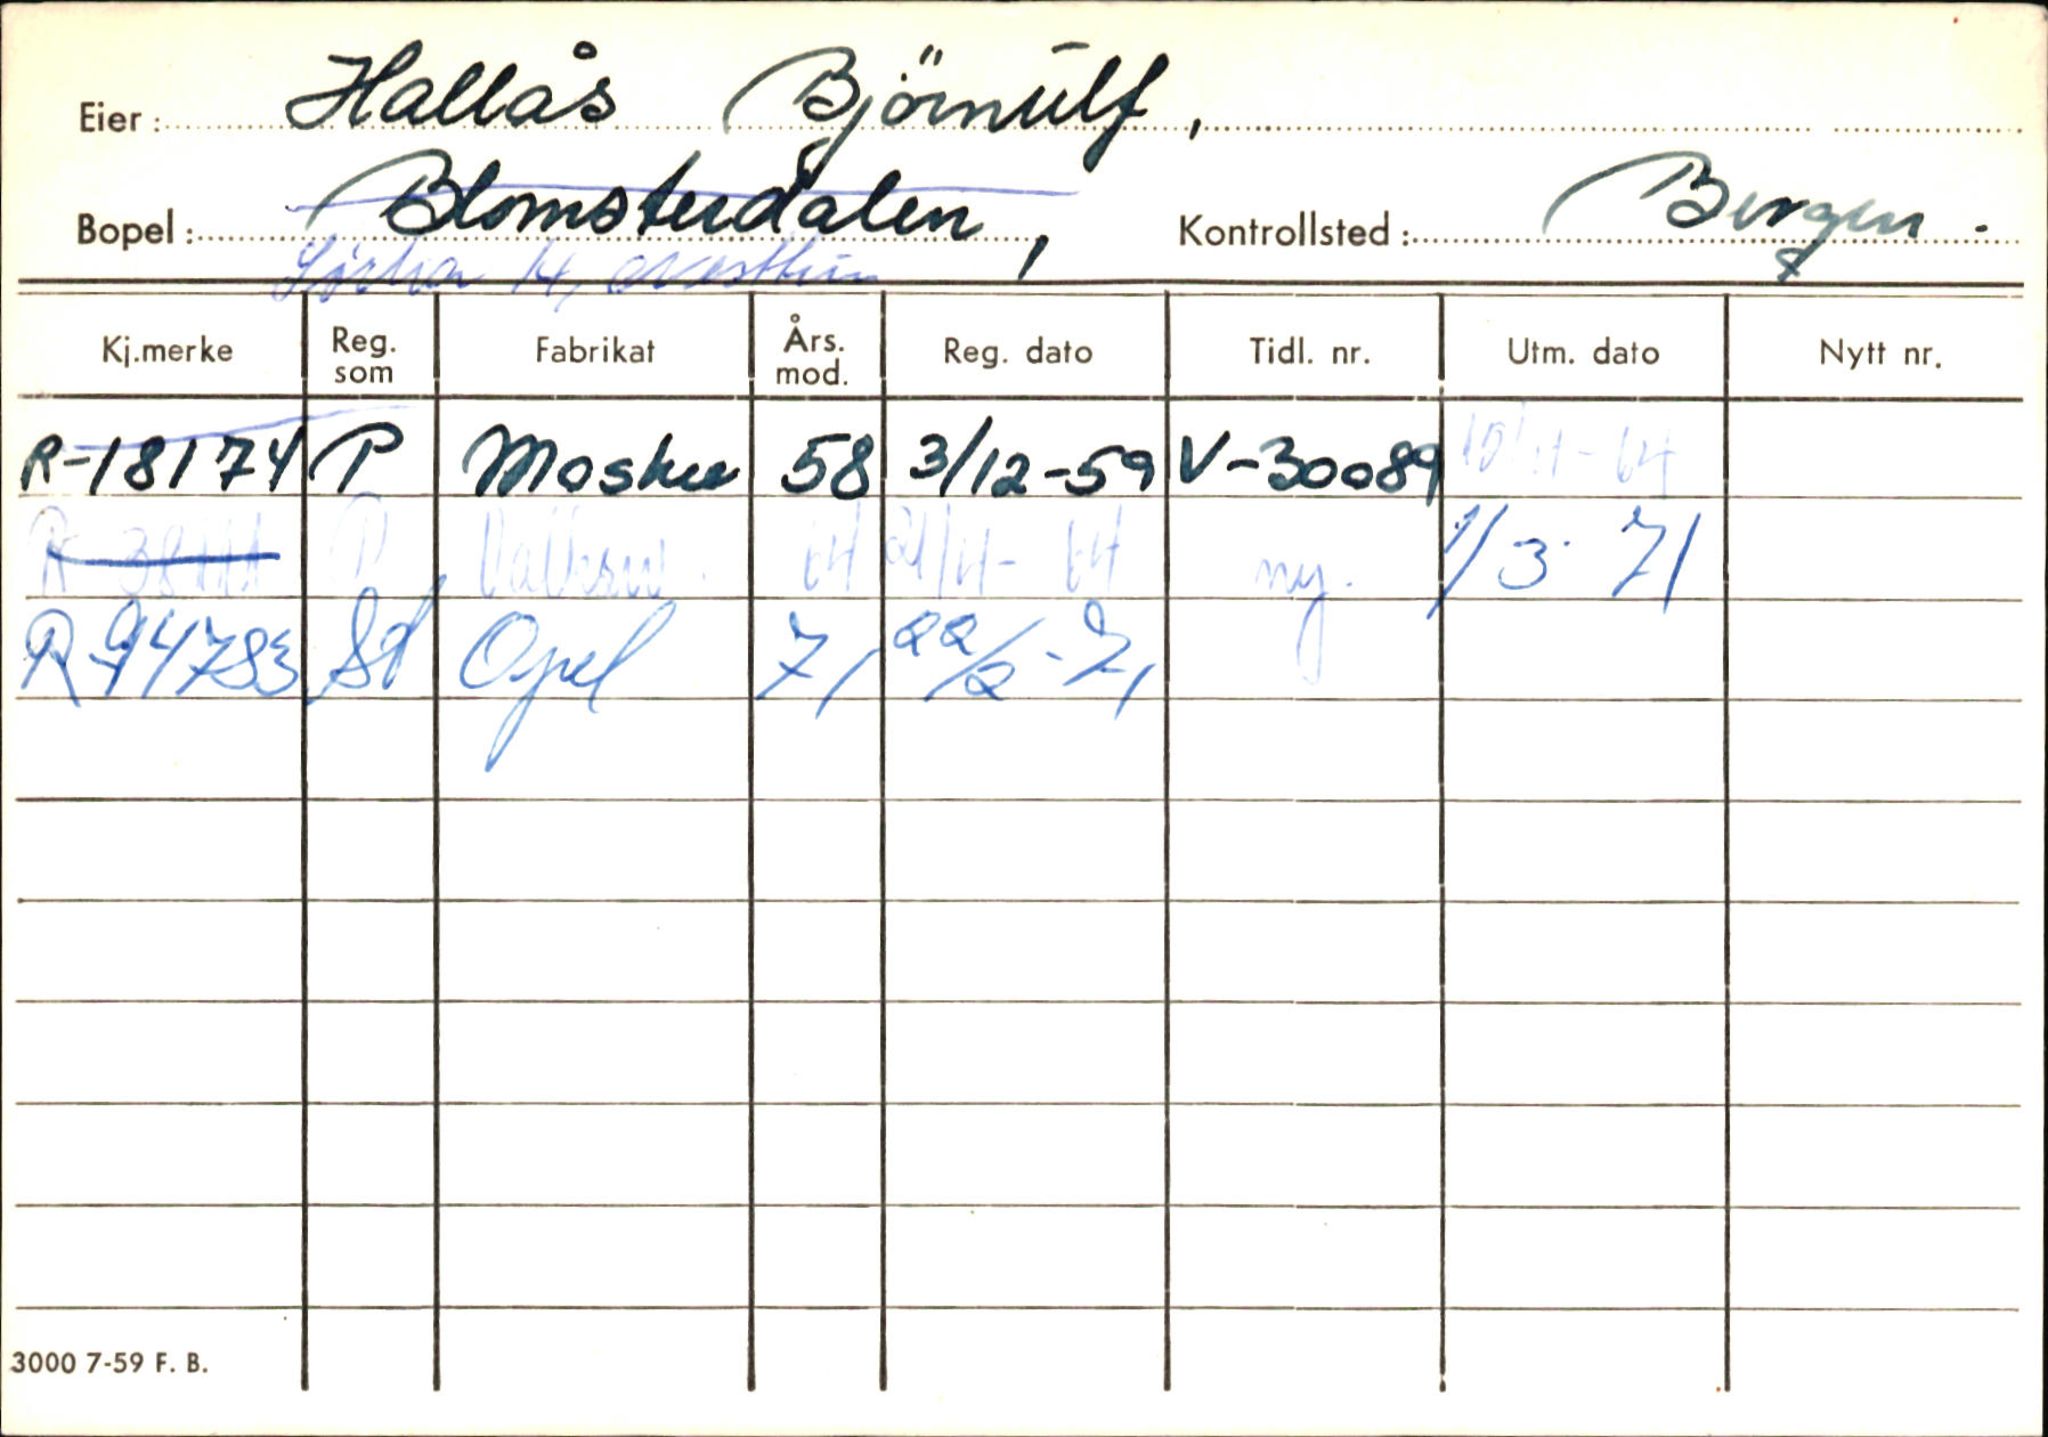 Eier: Hallås Björnulf,
Bopel: Blomsterdalen, Kontrollsted: Bergen.
14,
Kj.merke Reg. som Fabrikat Års. mod. Reg. dato Tidl. nr. Utm. dato Nytt nr.
R-18174 P Moskv 58 3/12-59 V-30089 10/11-64
P 64 21/11-64 ny. 1/3 71
R 94783 St Opel 71 22/2-71
3000 7-59 F. B.